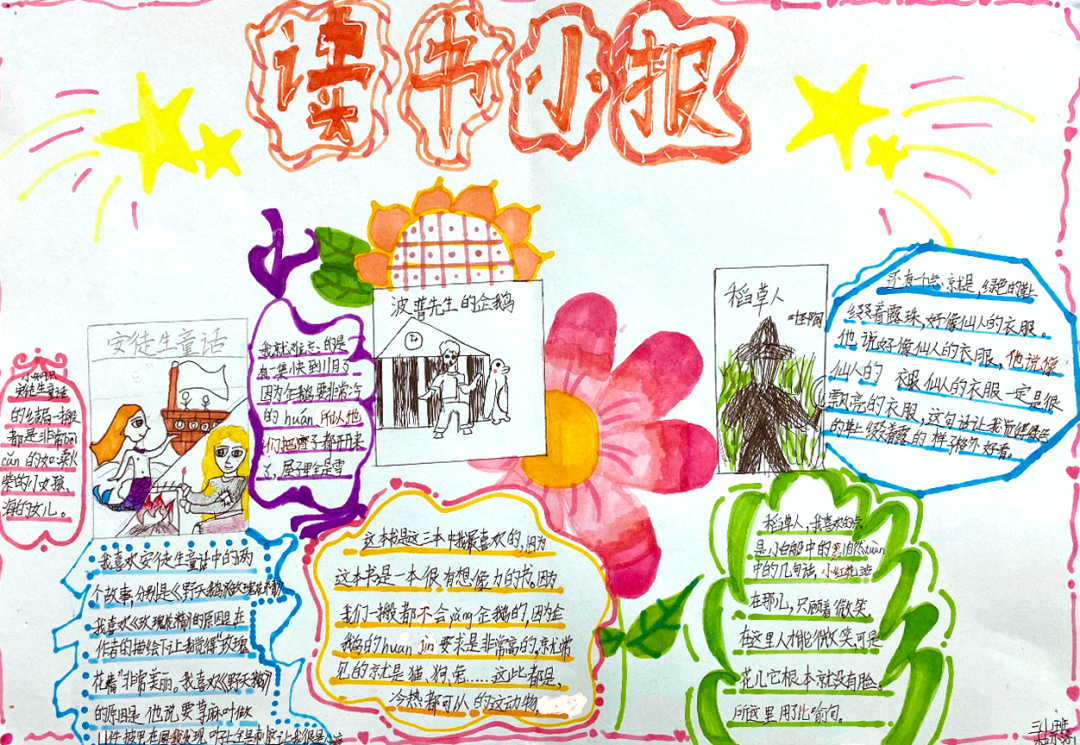 读书小报
小知识
安徒生童话
的结局一搬
都是非常bēi
cǎn的如:卖火
柴的小女孩、
海的女儿。
安徒生童话
我喜欢安徒生童话中的两
个故事,分别是《野天鹅》
我喜欢《玫瑰花精》的原因是在
作者的描绘下让我觉得“玫瑰
花精”非常美丽。我喜欢《野天鹅》
的原因是他说要荨麻叶做
我就难忘的是一
有一集小夫到川月了
因为企鹅要非常冷
的huán所以他
们把窗子都开开来
了,屋子里全是雪
波普先生的企鹅
这本书是这三本中我最喜欢的,因为
这本书是一本很有想像力的书。因为
我们一搬都不会yǎng企鹅的,因为企
鹅的huan jìn要求是非常高的,京尤常
见的京就是猫、狗、兔……这些都是、
冷热都可以的这动物
稻草人
稻草人,我喜欢的点
是小白船中的
中的几句话,小红花
在那儿,只顾着微笑。
在这里人才能微笑,可是
花儿它根本就没有脸。
所这里用了比喻句。
还有一个点就是,绿色的
缀着露珠,好像仙人的衣服。
他说好像仙人的衣服,他说像
仙人的衣服仙人的衣服一定是很
飘亮的衣服,这句话让我觉得
的 上缀着露的样子格外好看。